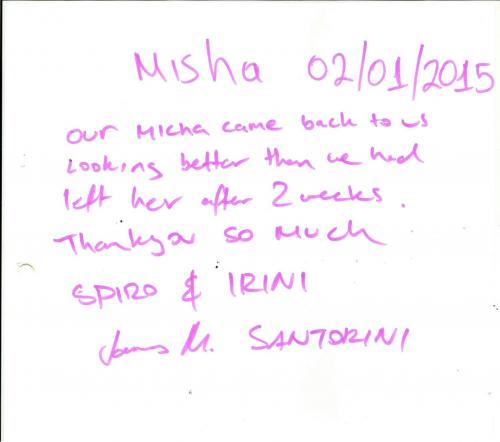 Misha 02/01/2015
our Micha came back to us
Looking better than we had
left her after 2 weeks.
Thankyou so much
SPIRO & IRINI
M. SANTORINI